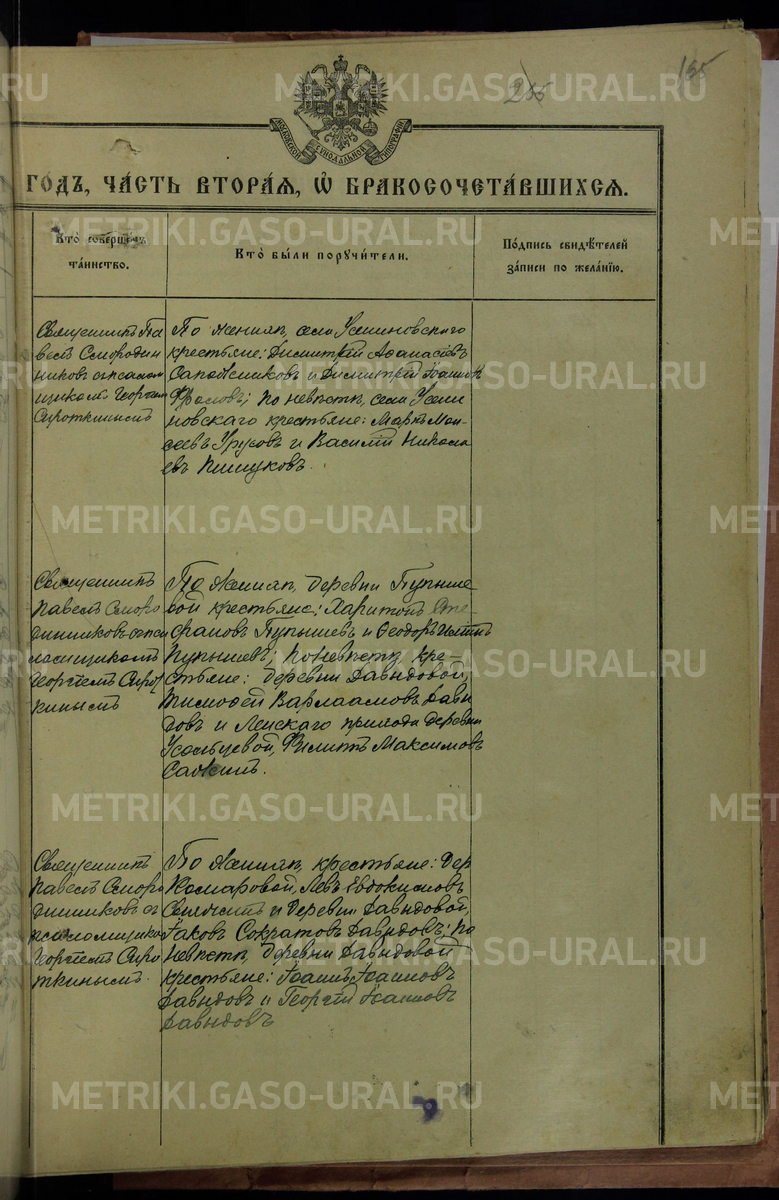 METRIKI.GASO-URAL.RU
255
155
МОСКОВСКОЙ СѴНОДАЛЬНОЙ ТИПОГРАФІИ
ГОДЪ, ЧАСТЬ ВТОРАЯ, Ѡ БРАКОСОЧЕТАВШИХСЯ.
Кто совершалъ
таинство.
Кто были поручители.
Подпись свидѣтелей
записи по желанію.
Священникъ Па
велъ Смородин
никовъ съ псалом
щикомъ Георгіем
Сироткинымъ
По женихѣ, села Усениновскаго
крестьяне: Димитрій Аѳанасіевъ
Сапожниковъ и Димитрій Іоаннов
Фроловъ; по невѣстѣ, села Усени
новскаго крестьяне: Маркъ Мои-
сеевъ Урусовъ и Василій Никола
евъ
Священникъ
Павелъ Сморо
динниковъ съ пса
ломщикомъ
Георгіемъ Сирот
кинымъ
По женихѣ, деревни Пупыше
вой крестьяне: Харитонъ Сте-
фановъ Пупышевъ и Ѳеодоръ
Пупышевъ; по невѣстѣ кре-
стьяне: деревни Давыдовой,
Тимоѳей Варлаамовъ Давы
довъ и Ленскаго прихода деревни
Усольцевой, Филиппъ Максимовъ
Сажинъ.
Священникъ
Павелъ Сморо
динниковъ съ
псаломщикомъ
Георгіемъ Сиро
ткинымъ.
По женихѣ, крестьяне: дер
Комаровой, Левъ Евдокимовъ
и деревни Давыдовой,
Іаковъ Сократовъ Давыдовъ; по
невѣстѣ, деревни Давыдовой
крестьяне: Іоаннъ Іоанновъ
Давыдовъ и Георгій Іоанновъ
Давыдовъ
METRIKI.GASO-URAL.RU